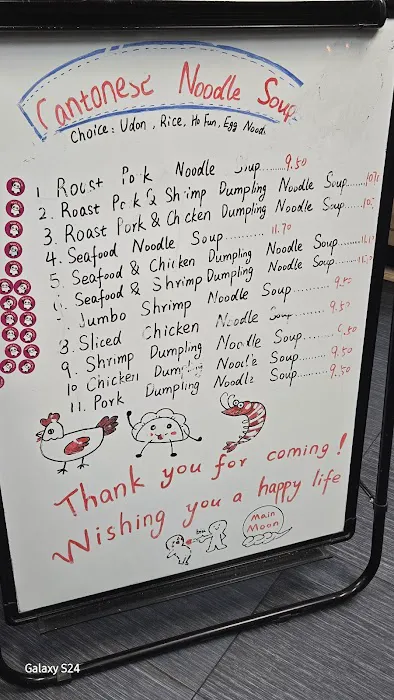 Cantonese Noodle Soup
Choice: Udon, Rice, Ho Fun, Egg Nood
1. Roast Pork Noodle Soup.......9.50
2. Roast Pork & Shrimp Dumpling Noodle Soup.....
3. Roast Pork & Chicken Dumpling Noodle Soup.....
4. Seafood Noodle Soup.......... 11.70
5. Seafood & Chicken Dumpling Noodle Soup.......
Seafood & Shrimp Dumpling Noodle Soup.......
Jumbo Shrimp Noodle Soup............ 9.50
Sliced Chicken Noodle Soup........... 9.50
9. Shrimp Dumpling Noodle Soup........
10 Chicken Dumpling Noodle Soup....... 9.50
11. Pork Dumpling Noodle Soup....... 9.50
Thank you for coming!
Wishing you a happy life
Main
Moon
Galaxy S24